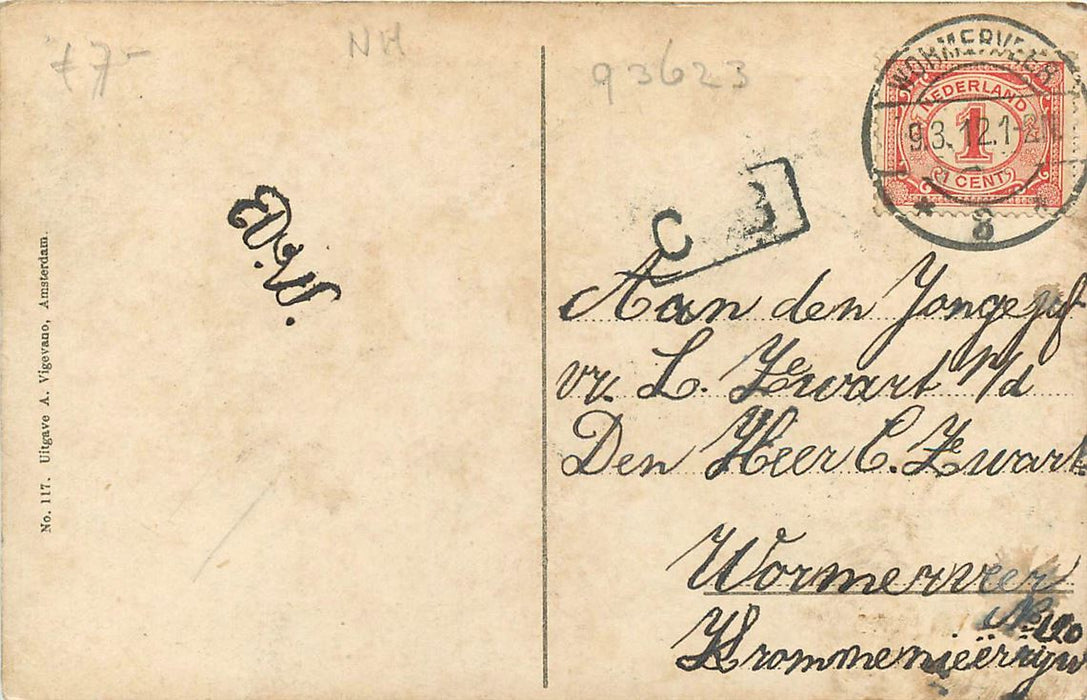 f 7-
NH
93623
WORMERVEER
NEDERLAND
9.3.12.1-2N
1
1 CENT
8
C
No. 117. Uitgave A. Vigevano, Amsterdam.
Aan den Jongejuf-
vr. L. Zwart p/d
Den Heer C. Zwart
Wormerveer
Krommenieërrijw